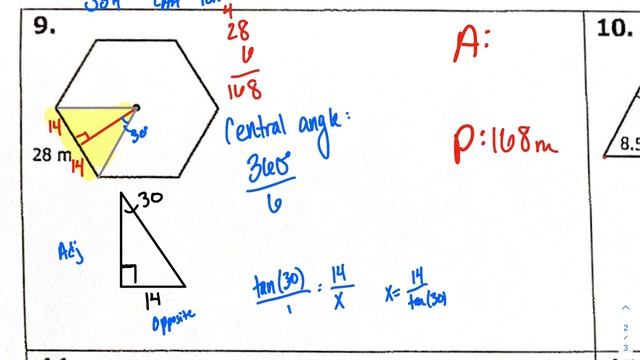 9.
4
28
6
168
A:
10.
14
30°
28 m
14
Central angle:
360°
6
P:168m
8.5
30
Adj
14
Opposite
tan(30) = 14
1 x
x= 14
tan(30)
2
3